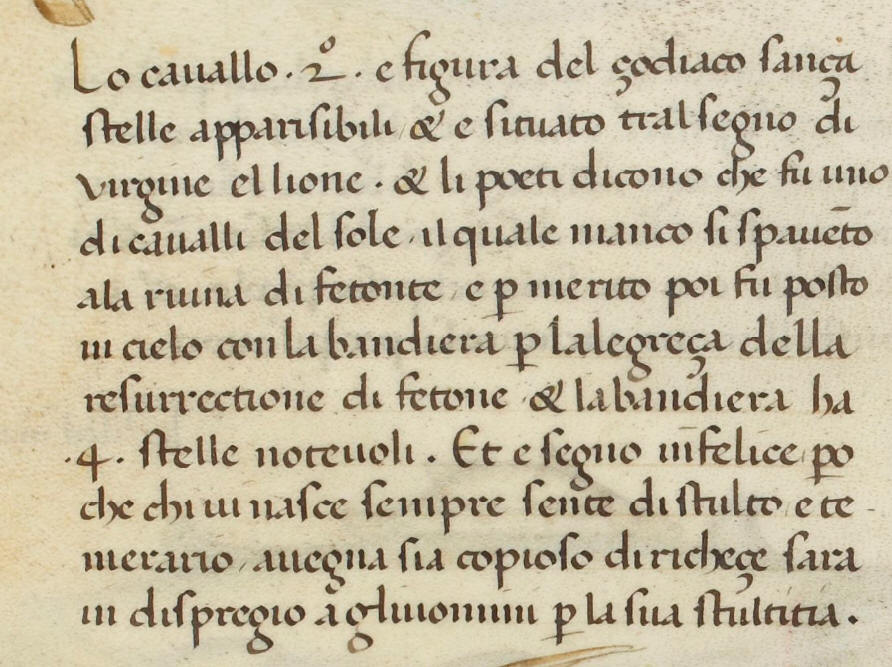 Lo cauallo . 2º . e figura del çodiaco sança
stelle apparisibili / & e situato tral segno di
virgine el lione . & li poeti dicono che fu uno
di caualli del sole / il quale manco si spauēto
ala ruina di fetonte / e ꝑ merito poi fu posto
in cielo con la bandiera ꝑ lalegreça della
resurrectione di fetone / & la bandiera ha
.4. stelle noteuoli . Et e segno infelice / ꝑo
che chi ui nasce sempre sente di stulto / e te -
merario / auegna sia copioso di richeçe sara
in dispregio a gliuomini ꝑ la sua stultitia .